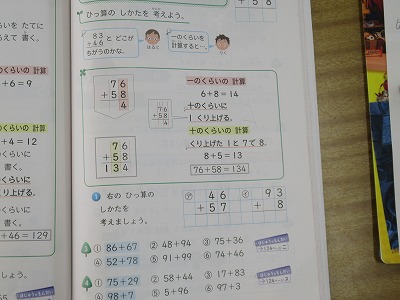 ひっ算の しかたを 考えよう。
らいを たてに
えて 書く。
58
83
+46
と どこが
ちがうのかな。
一のくらいを
計算すると…。
らいの 計算
+6=9
76
+58
4
一のくらいの 計算
6+8=14
十のくらいに
1 くり上げる。
76
+58
4
十のくらいの 計算
くり上げた 1と 7で 8。
8+5=13
76+58=134
76
+58
134
らいの 計算
+4=12
のくらいに
書く。
のくらいに
くり上げる。
+46=129
1 右の ひっ算の
しかたを
考えましょう。
ア 46
+57
イ 93
+ 8
3 ① 86+67 ② 48+94 ③ 75+36
④ 52+78 ⑤ 91+99 ⑥ 74+46
4 ① 75+29 ② 58+44 ③ 17+83
④ 98+7 ⑤ 5+96 ⑥ 97+3
しょう。